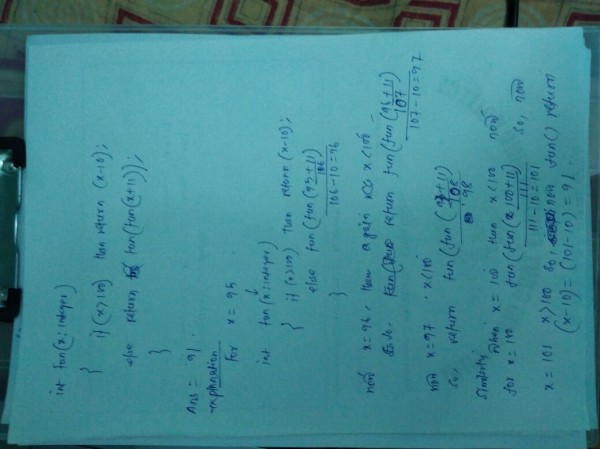 int fan(x: integer)
{ if (x>100) then return (x-10);
else return fan(fan(x+11));
}
Ans = 91
explanation
For x = 95
int fan(x: integer)
{ if (x>100) then return (x-10);
else fan(fan(95+11))
106
106-10=96
}
now x=96, then again x<100.
So. return fan(fan(96+11)
107
107-10=97
now x=97 x<100
So, return fan(fan(97+11)
108
98
Similarly when x=100 then x<100 now
for x=100 fan(fan(100+11)
111
111-10=101
So, now
x=101 x>100 so, now fan() return
(x-10)=(101-10)=91.